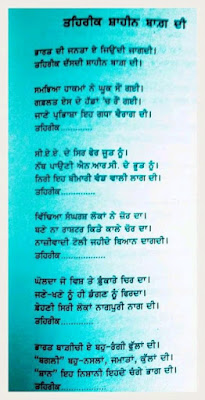 ਤਹਿਰੀਕ ਸ਼ਾਹੀਨ ਬਾਗ਼ ਦੀ
ਭਾਰਤ ਦੀ ਜਨਤਾ ਏ ਜਿਉਂਦੀ ਜਾਗਦੀ।
ਤਹਿਰੀਕ ਦੱਸਦੀ ਸ਼ਾਹੀਨ ਬਾਗ਼ ਦੀ।
ਸਮਝਿਆ ਹਾਕਮਾਂ ਨੇ ਘੂਕ ਸੌਂ ਗਈ।
ਗਫ਼ਲਤ ਏਸ ਦੇ ਹੱਡਾਂ 'ਚ ਰੌਂ ਗਈ।
ਜਾਣੋ ਪ੍ਰਤਿਭਾ ਇਹ ਗਧਾ ਵੈਰਾਗ ਦੀ।
ਤਹਿਰੀਕ.............
ਸੀ.ਏ.ਏ. ਦੇ ਸਿਰ ਫੇਰ ਜੂਤ ਨੂੰ।
ਨੱਥ ਪਾਉਣੀ ਐਨ.ਆਰ.ਸੀ. ਦੇ ਭੂਤ ਨੂੰ।
ਨਿਰੀ ਇਹ ਬੀਮਾਰੀ ਵੰਡ ਵਾਲੀ ਲਾਗ ਦੀ।
ਤਹਿਰੀਕ..............
ਵਿੱਢਿਆ ਸੰਘਰਸ਼ ਲੋਕਾਂ ਨੇ ਜ਼ੋਰ ਦਾ।
ਬਣੇ ਨਾ ਰਾਸ਼ਟਰ ਕਿਤੇ ਕਾਲੇ ਚੋਰ ਦਾ।
ਨਾਜ਼ੀਵਾਦੀ ਟੋਲੀ ਜਹੀਦੇ ਬਿਆਨ ਦਾਗਦੀ।
ਤਹਿਰੀਕ.................
ਘੋਲਦਾ ਜੋ ਵਿਸ਼ ਤੇ ਫੁੰਕਾਰੇ ਚਿਰ ਦਾ।
ਜਣੇ-ਖਣੇ ਨੂੰ ਹੀ ਡੰਗਣ ਨੂੰ ਫਿਰਦਾ।
ਫੇਹਣੀ ਸਿਰੀ ਲੋਕਾਂ ਨਾਗਪੁਰੀ ਨਾਗ ਦੀ।
ਤਹਿਰੀਕ..............
ਭਾਰਤ ਬਾਗੀਚੀ ਏ ਬਹੁ-ਰੰਗੀ ਫੁੱਲਾਂ ਦੀ।
"ਬਗਲੀ" ਬਹੁ-ਨਸਲਾਂ, ਜਮਾਤਾਂ, ਕੁੱਲਾਂ ਦੀ।
"ਬਾਨ" ਇਹ ਨਿਸ਼ਾਨੀ ਇਹਦੇ ਚੰਗੇ ਭਾਗ ਦੀ।
ਤਹਿਰੀਕ..............